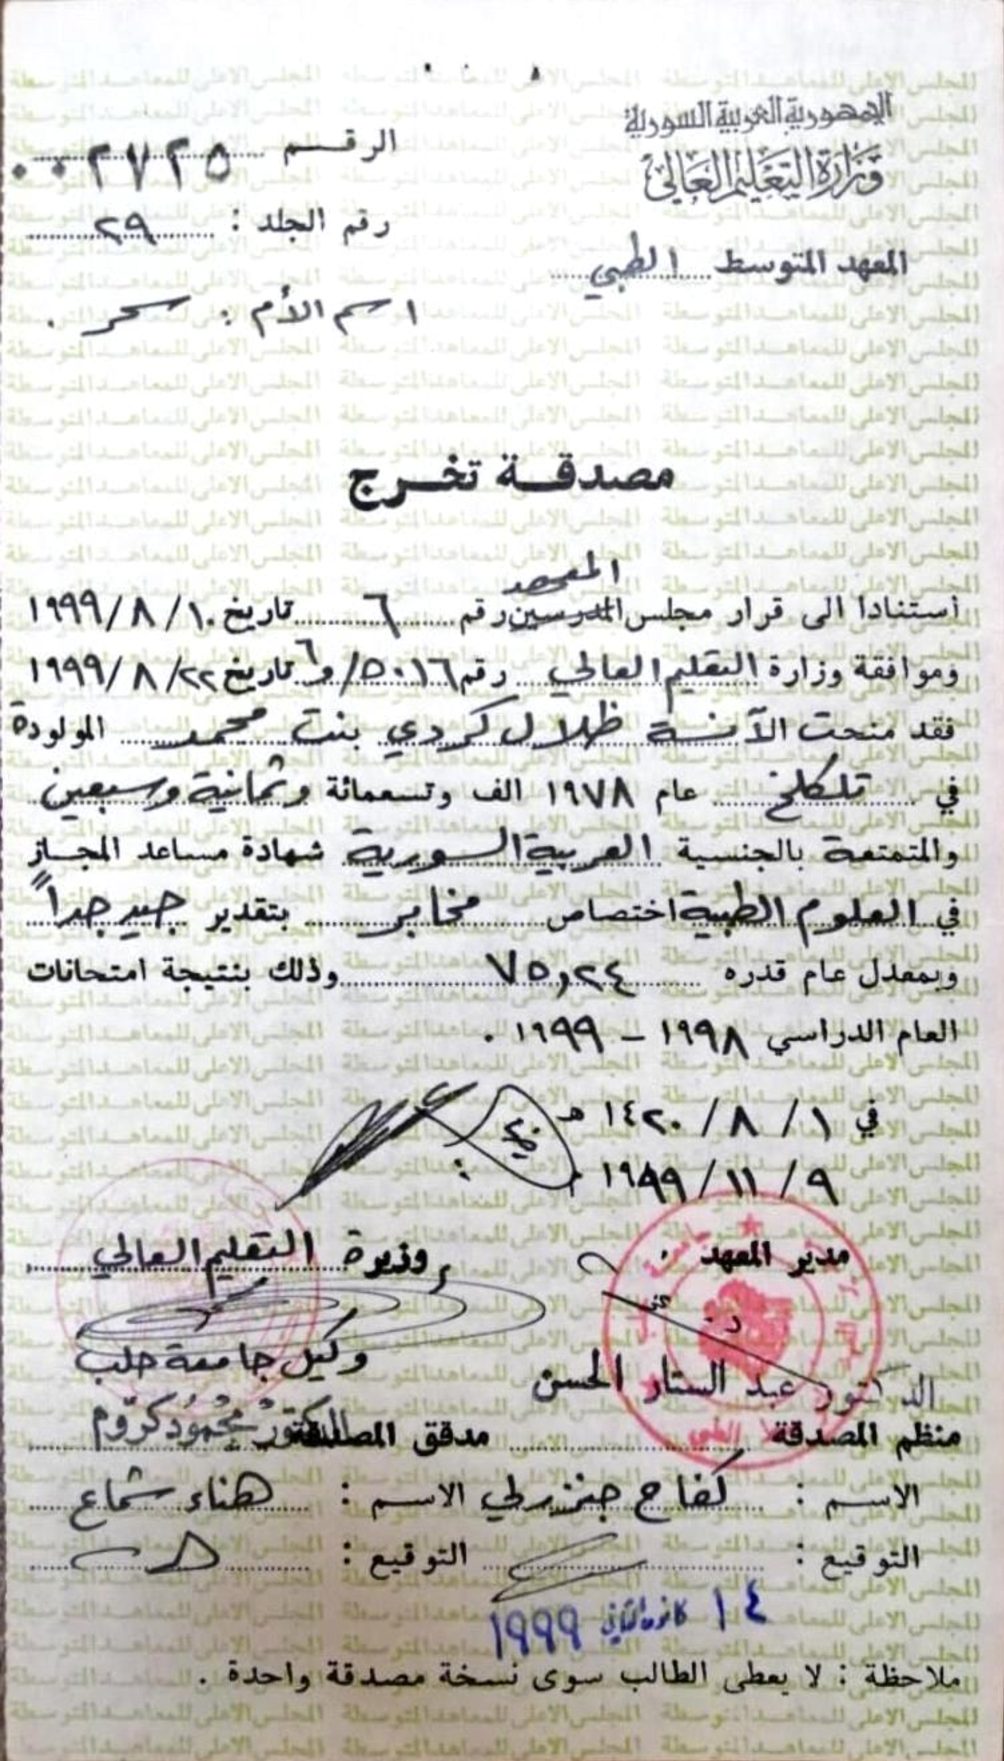 الجمهورية العربية السورية
وزارة التعليم العالي
المعهد المتوسط الطبي
الرقم ٠٠٢٧٢٥
رقم الجلد : ٢٩
اسم الأم : سحر .
مصدقة تخرج
المعهد
استنادا الى قرار مجلس المدرسين رقم ٦ تاريخ ١٩٩٩/٨/١٠
وموافقة وزارة التعليم العالي رقم ٥٠١٦/و٦ تاريخ ١٩٩٩/٨/٢٢
فقد منحت الآنسة ظلال كردي بنت محمد المولودة
في تلكلخ عام ١٩٧٨ الف وتسعمائة وثمانية وسبعين
والمتمتعة بالجنسية العربية السورية شهادة مساعد المجاز
في العلوم الطبية اختصاص مخابر بتقدير جيد جداً
وبمعدل عام قدره ٧٥,٢٤ وذلك بنتيجة امتحانات
العام الدراسي ١٩٩٨ - ١٩٩٩ .
في ١ / ٨ / ١٤٢٠ هـ
٩ / ١١ / ١٩٩٩ .
مدير المعهد
الدكتور عبد الستار الحسن
وزيرة التعليم العالي
وكيل جامعة حلب
الدكتور محمود كروم
منظم المصدقة مدقق المصدقة
الاسم : كفاح جنزرلي الاسم : هناء شماع
التوقيع : التوقيع :
١٤ كانون الثاني 1999
ملاحظة : لا يعطى الطالب سوى نسخة مصدقة واحدة .